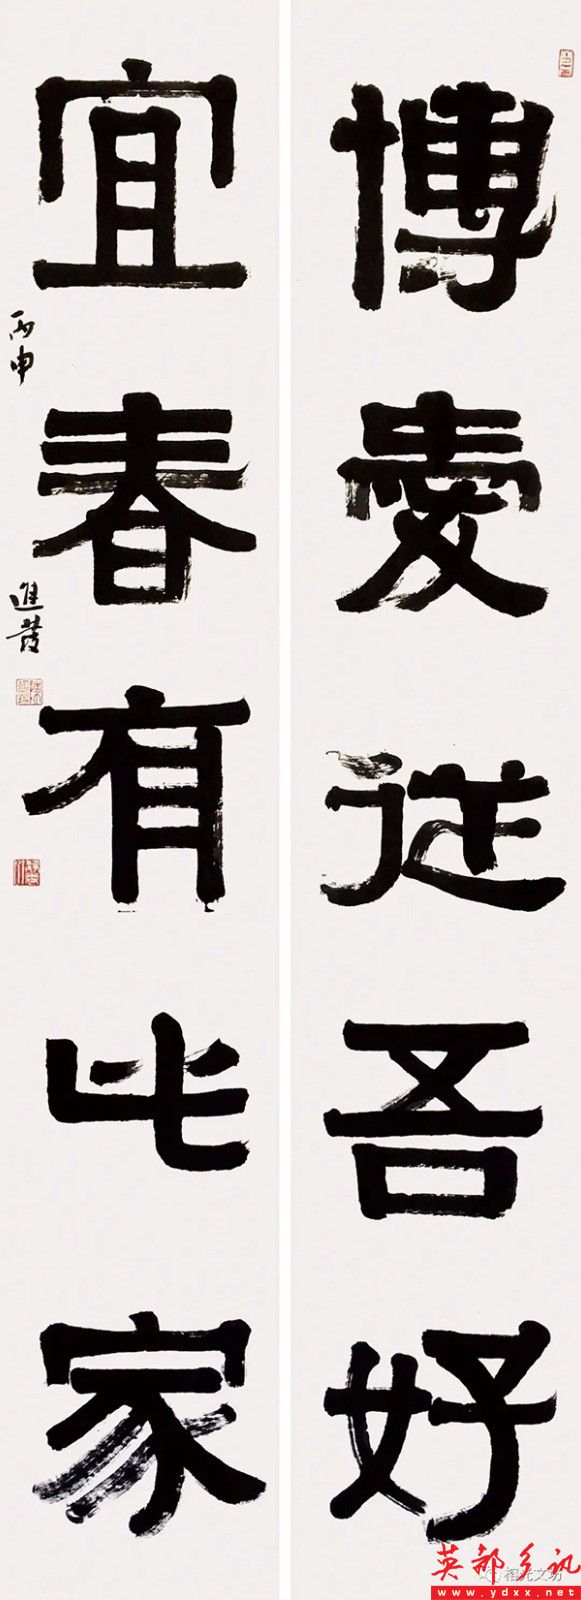 博愛從吾好
宜春有此家
丙申
進發
英都乡讯
www.ydxx.net